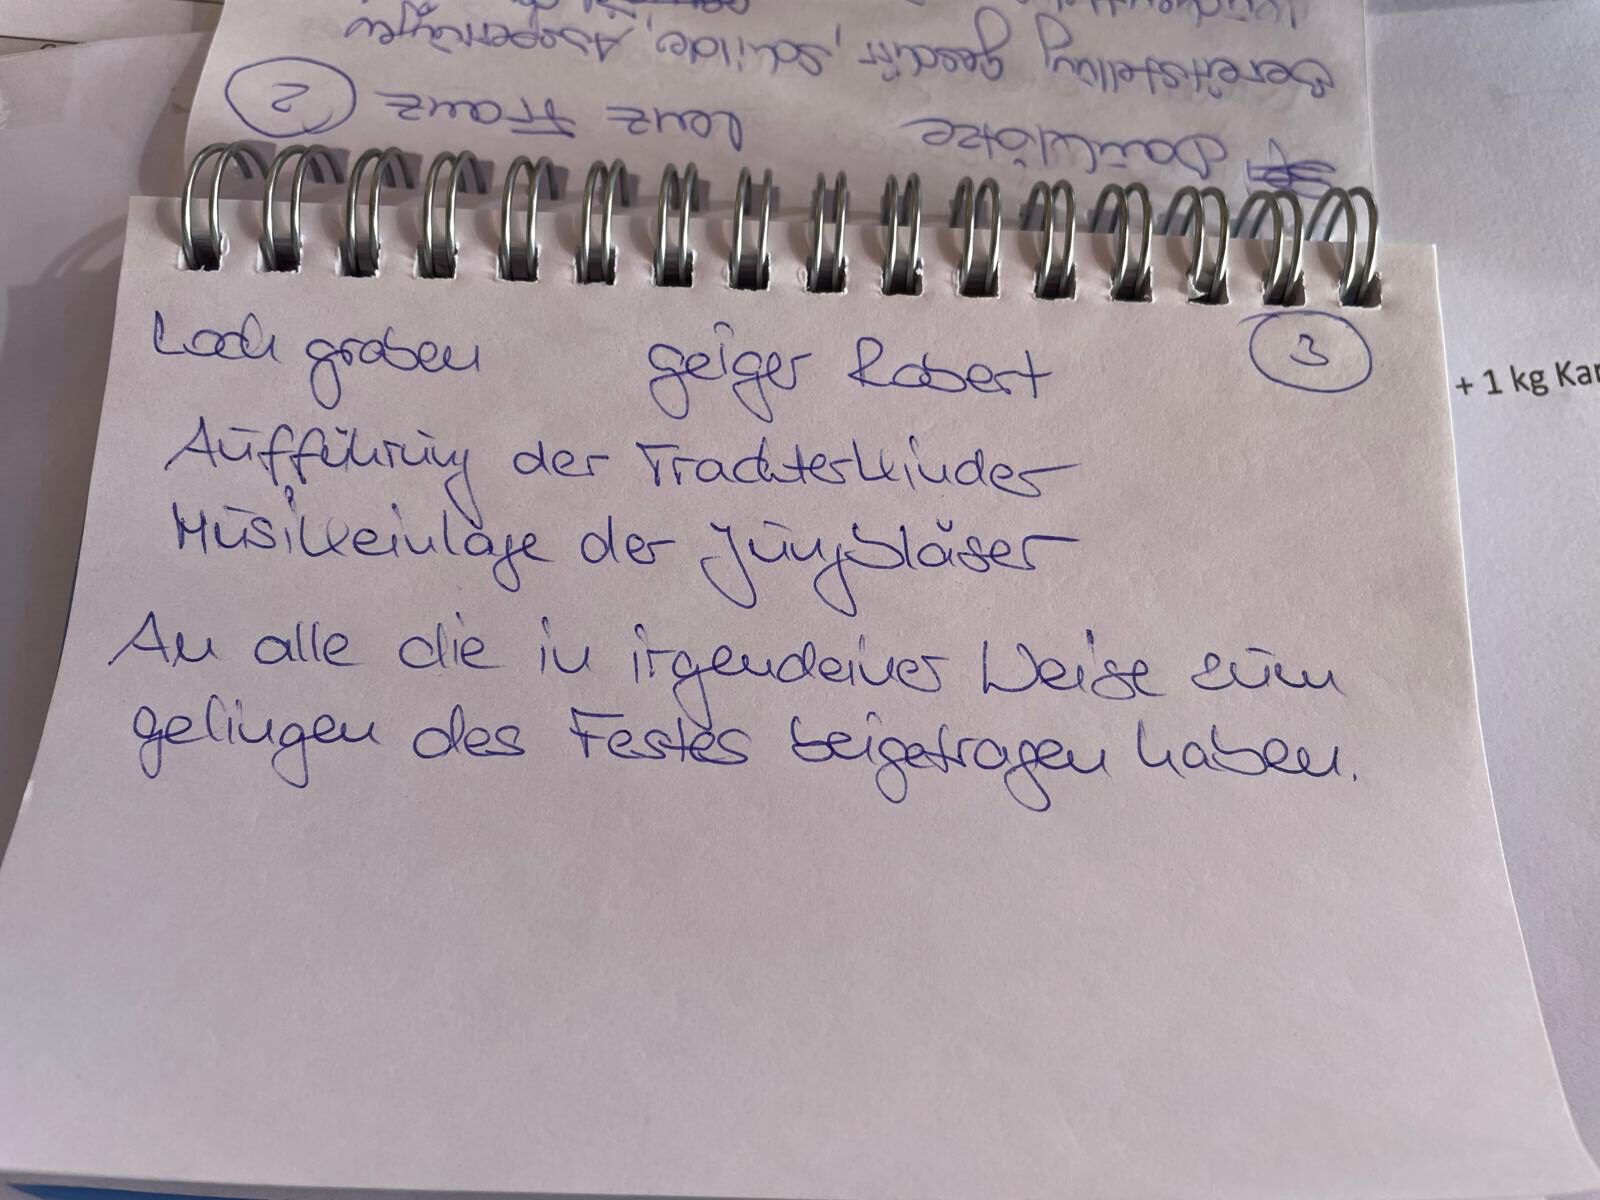 Bereitstellung geschirr, Schilder, Absperrungen
Dankkärtze Lenz Franz 2
Loch graben geiger Robert 3
Aufführung der Trachterkinder
Musikeinlage der Jungbläser
An alle die in irgendeiner Weise zum
gelingen des Festes beigetragen haben.
+ 1 kg Kar